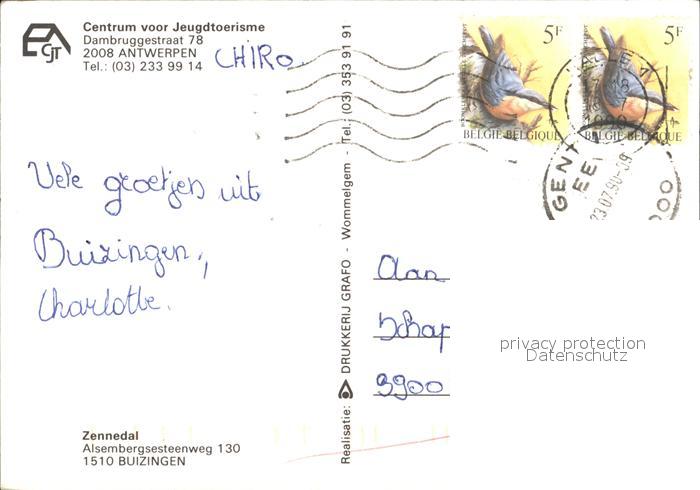 CJT
Centrum voor Jeugdtoerisme
Dambruggestraat 78
2008 ANTWERPEN
Tel.: (03) 233 99 14
CHIRO
Vele groetjes uit
Buizingen,
Charlotte.
Zennedal
Alsembergsesteenweg 130
1510 BUIZINGEN
Realisatie: DRUKKERIJ GRAFO - Wommelgem - Tel.: (03) 353 91 91
5F
BELGIE-BELGIQUE
5F
BELGIE-BELGIQUE
1990
GENT
23.07.90-09
Aan
9900
privacy protection
Datenschutz